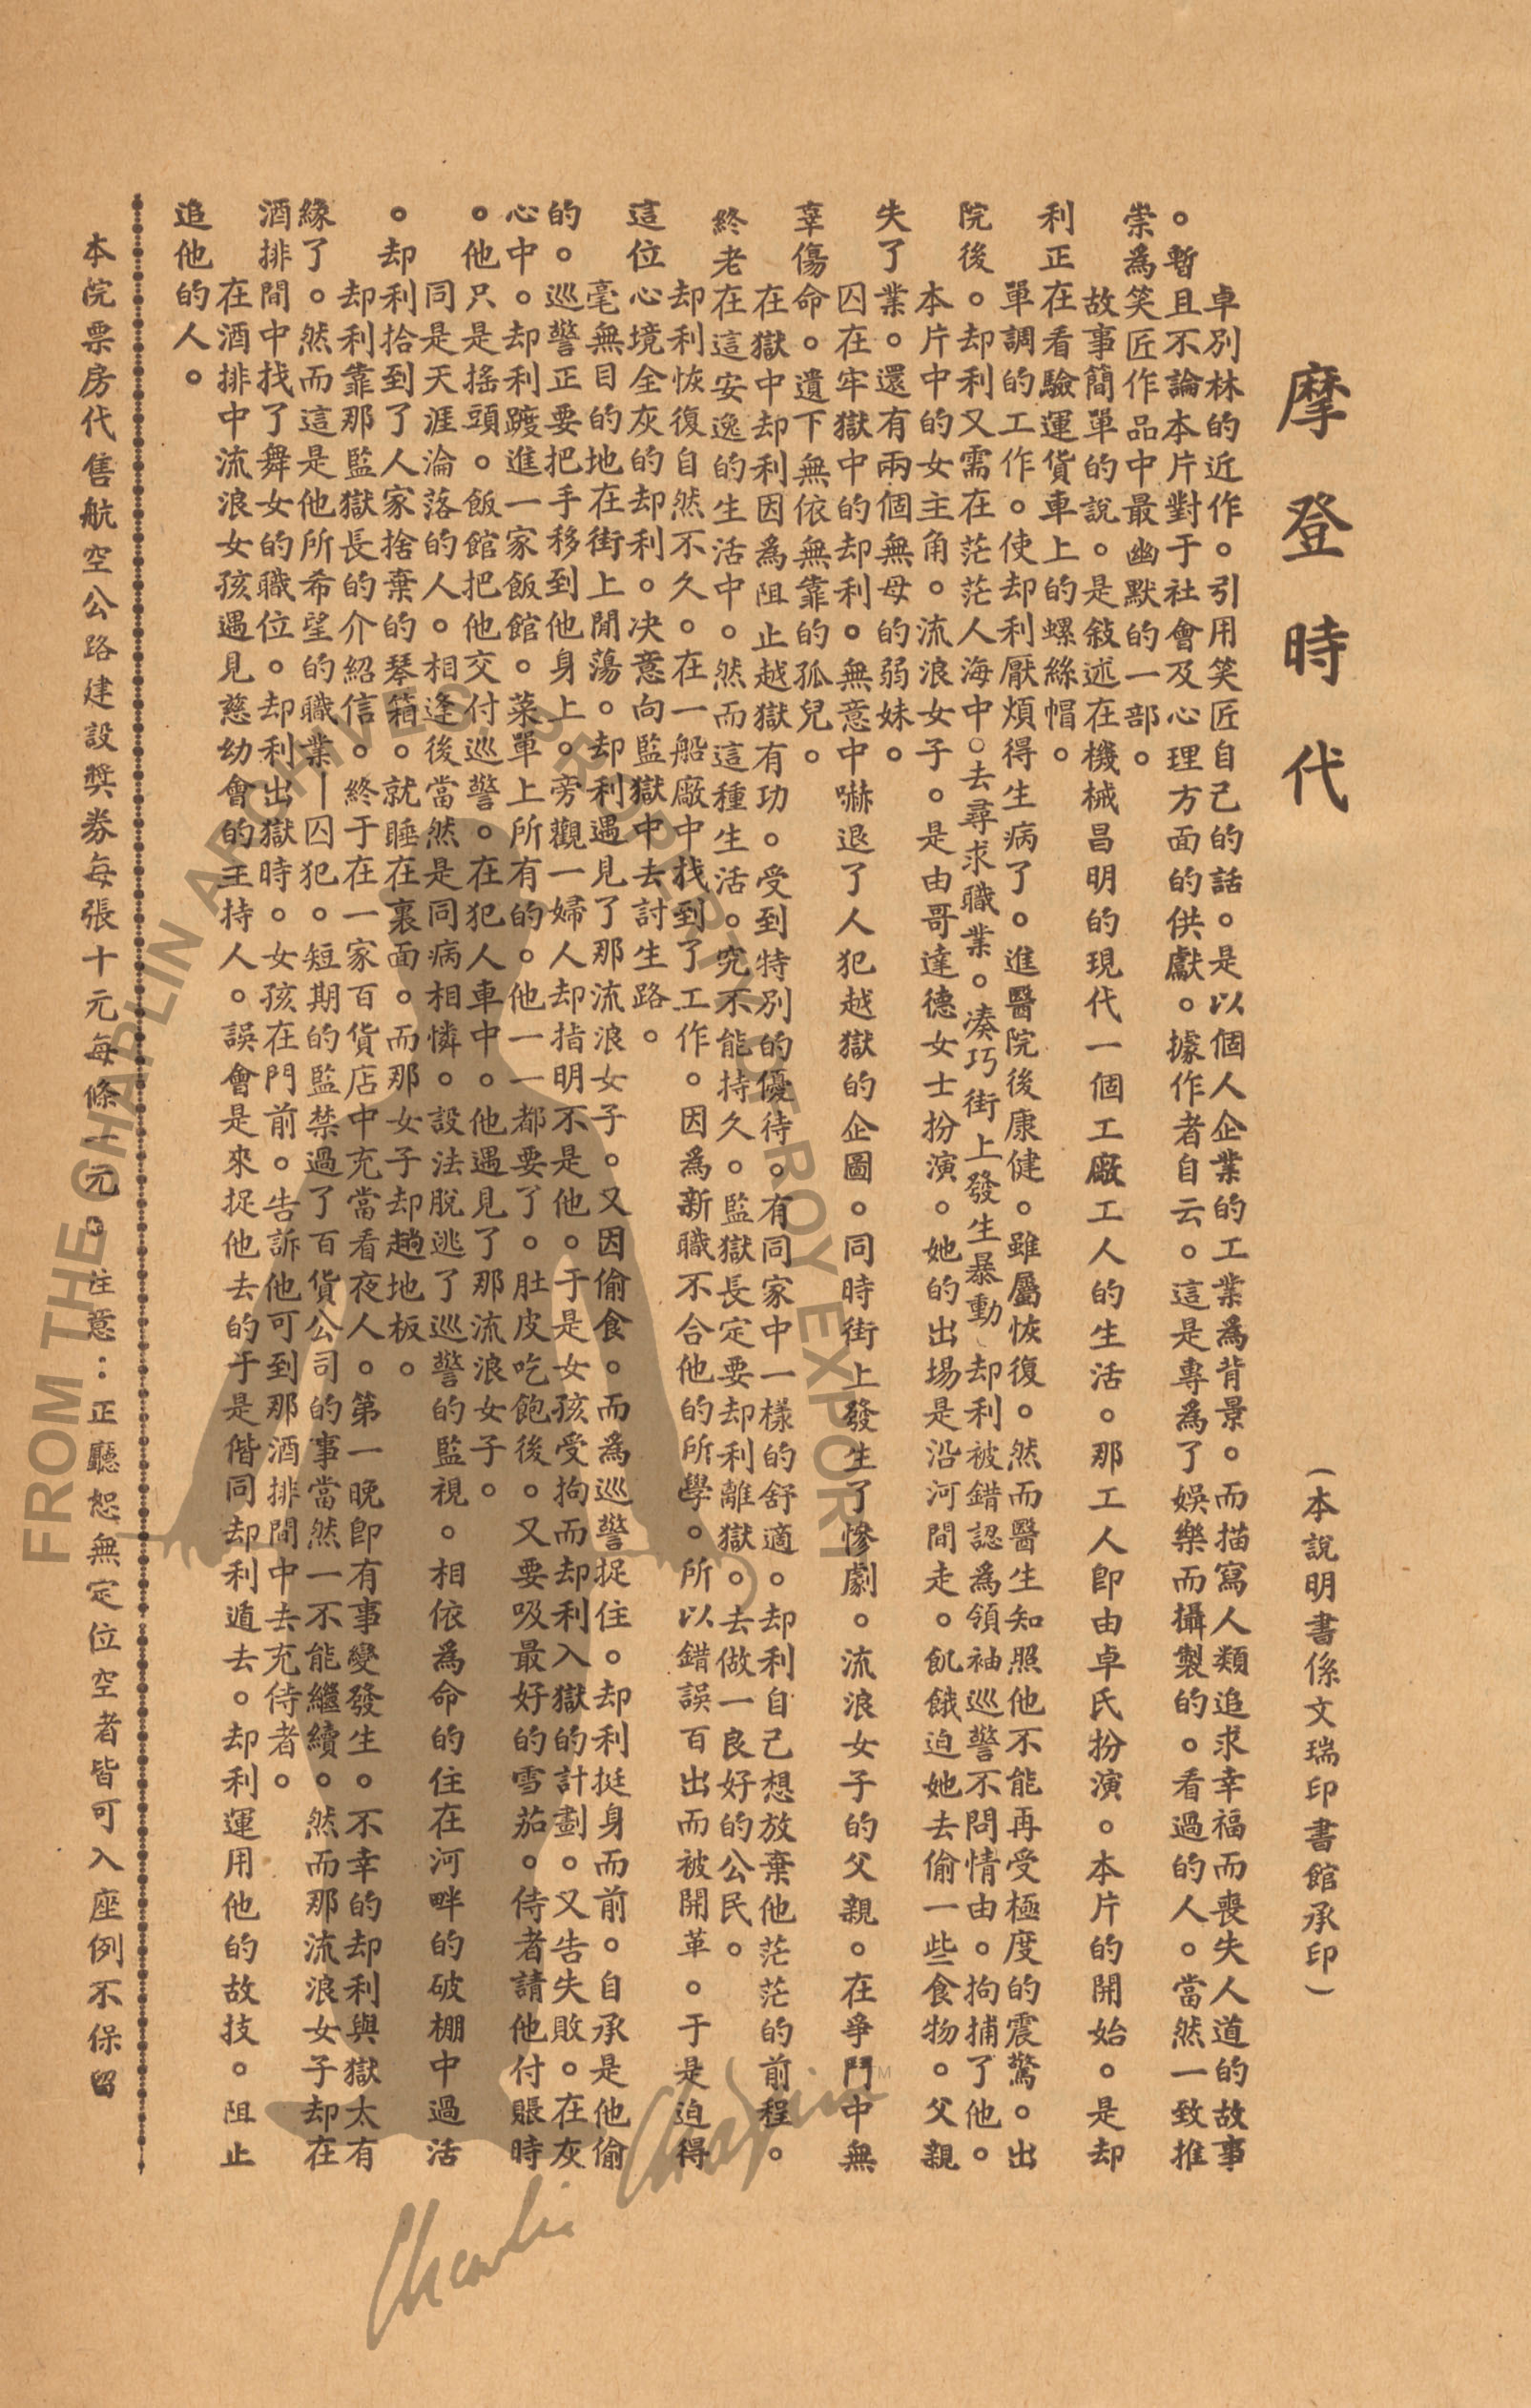 摩登時代
(本說明書係文瑞印書館承印)
卓別林的近作。引用笑匠自己的話。是以個人企業的工業爲背景。而描寫人類追求幸福而喪失人道的故事
。暫且不論本片對于社會及心理方面的供獻。據作者自云。這是專爲了娛樂而攝製的。看過的人。當然一致推
崇爲笑匠作品中最幽默的一部。
故事簡單的說。是敍述在機械昌明的現代一個工廠工人的生活。那工人卽由卓氏扮演。本片的開始。是却
利正在看驗運貨車上的螺絲帽。
單調的工作。使却利厭煩得生病了。進醫院後康健。雖屬恢復。然而醫生知照他不能再受極度的震驚。出
院後。却利又需在茫茫人海中。去尋求職業。湊巧街上發生暴動、却利被錯認爲領袖巡警不問情由。拘捕了他。
本片中的女主角。流浪女子。是由哥達德女士扮演。她的出場是沿河間走。飢餓迫她去偷一些食物。父親
失了業。還有兩個無母的弱妹。
囚在牢獄中的却利。無意中嚇退了人犯越獄的企圖。同時街上發生了慘劇。流浪女子的父親。在爭鬥中無
辜傷命。遺下無依無靠的孤兒。
在獄中却利因爲阻止越獄有功。受到特別的優待。有同家中一樣的舒適。却利自己想放棄他茫茫的前程。
終老在這安逸的生活中。然而這種生活。究不能持久。監獄長定要却利離獄。去做一良好的公民。
却利恢復自然不久。在一船廠中找到了工作。因爲新職不合他的所學。所以錯誤百出而被開革。于是迫得
這位心境全灰的却利。決意向監獄中去討生路。
毫無目的地在街上閒蕩。却利遇見了那流浪女子。又因偷食。而爲巡警捉住。却利挺身而前。自承是他偷
的。巡警正要把手移到他身上。旁觀一婦人却指明不是他。于是女孩受拘而却利入獄的計劃。又告失敗。在灰
心中。却利踱進一家飯館。菜單上所有的。他一一都要了。肚皮吃飽後。又要吸最好的雪茄。侍者請他付賬時
。他只是搖頭。飯館把他交付巡警。在犯人車中。他遇見了那流浪女子。
同是天涯淪落的人。相逢後當然是同病相憐。設法脫逃了巡警的監視。相依爲命的住在河畔的破棚中過活
。却利拾到了人家捨棄的琴箱。就睡在裏面。而那女子却趟地板。
却利靠那監獄長的介紹信。終于在一家百貨店中充當看夜人。第一晚卽有事變發生。不幸的却利與獄太有
緣了。然而這是他所希望的職業—囚犯。短期的監禁過了百貨公司的事當然一不能繼續。然而那流浪女子却在
酒排間中找了舞女的職位。却利出獄時。女孩在門前。告訴他可到那酒排間中去充侍者。
在酒排中流浪女孩遇見慈幼會的主持人。誤會是來捉他去的于是偕同却利遁去。却利運用他的故技。阻止
追他的人。
本院票房代售航空公路建設獎券每張十元每條一元。注意：正廳恕無定位空者皆可入座例不保留
FROM THE CHAPLIN ARCHIVES. PROPERTY OF ROY EXPORT
Charlie Chaplin TM